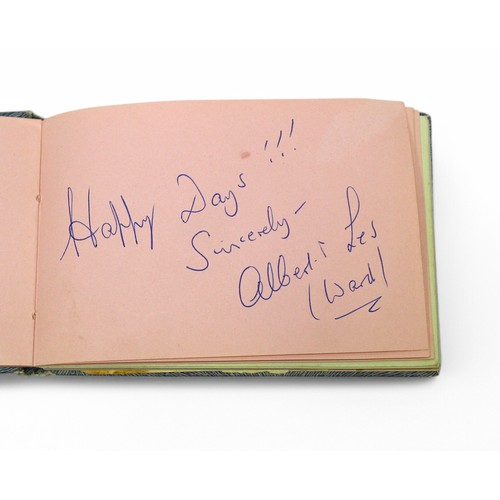 Happy Days !!!
Sincerely -
Albert & Les
(Ward)